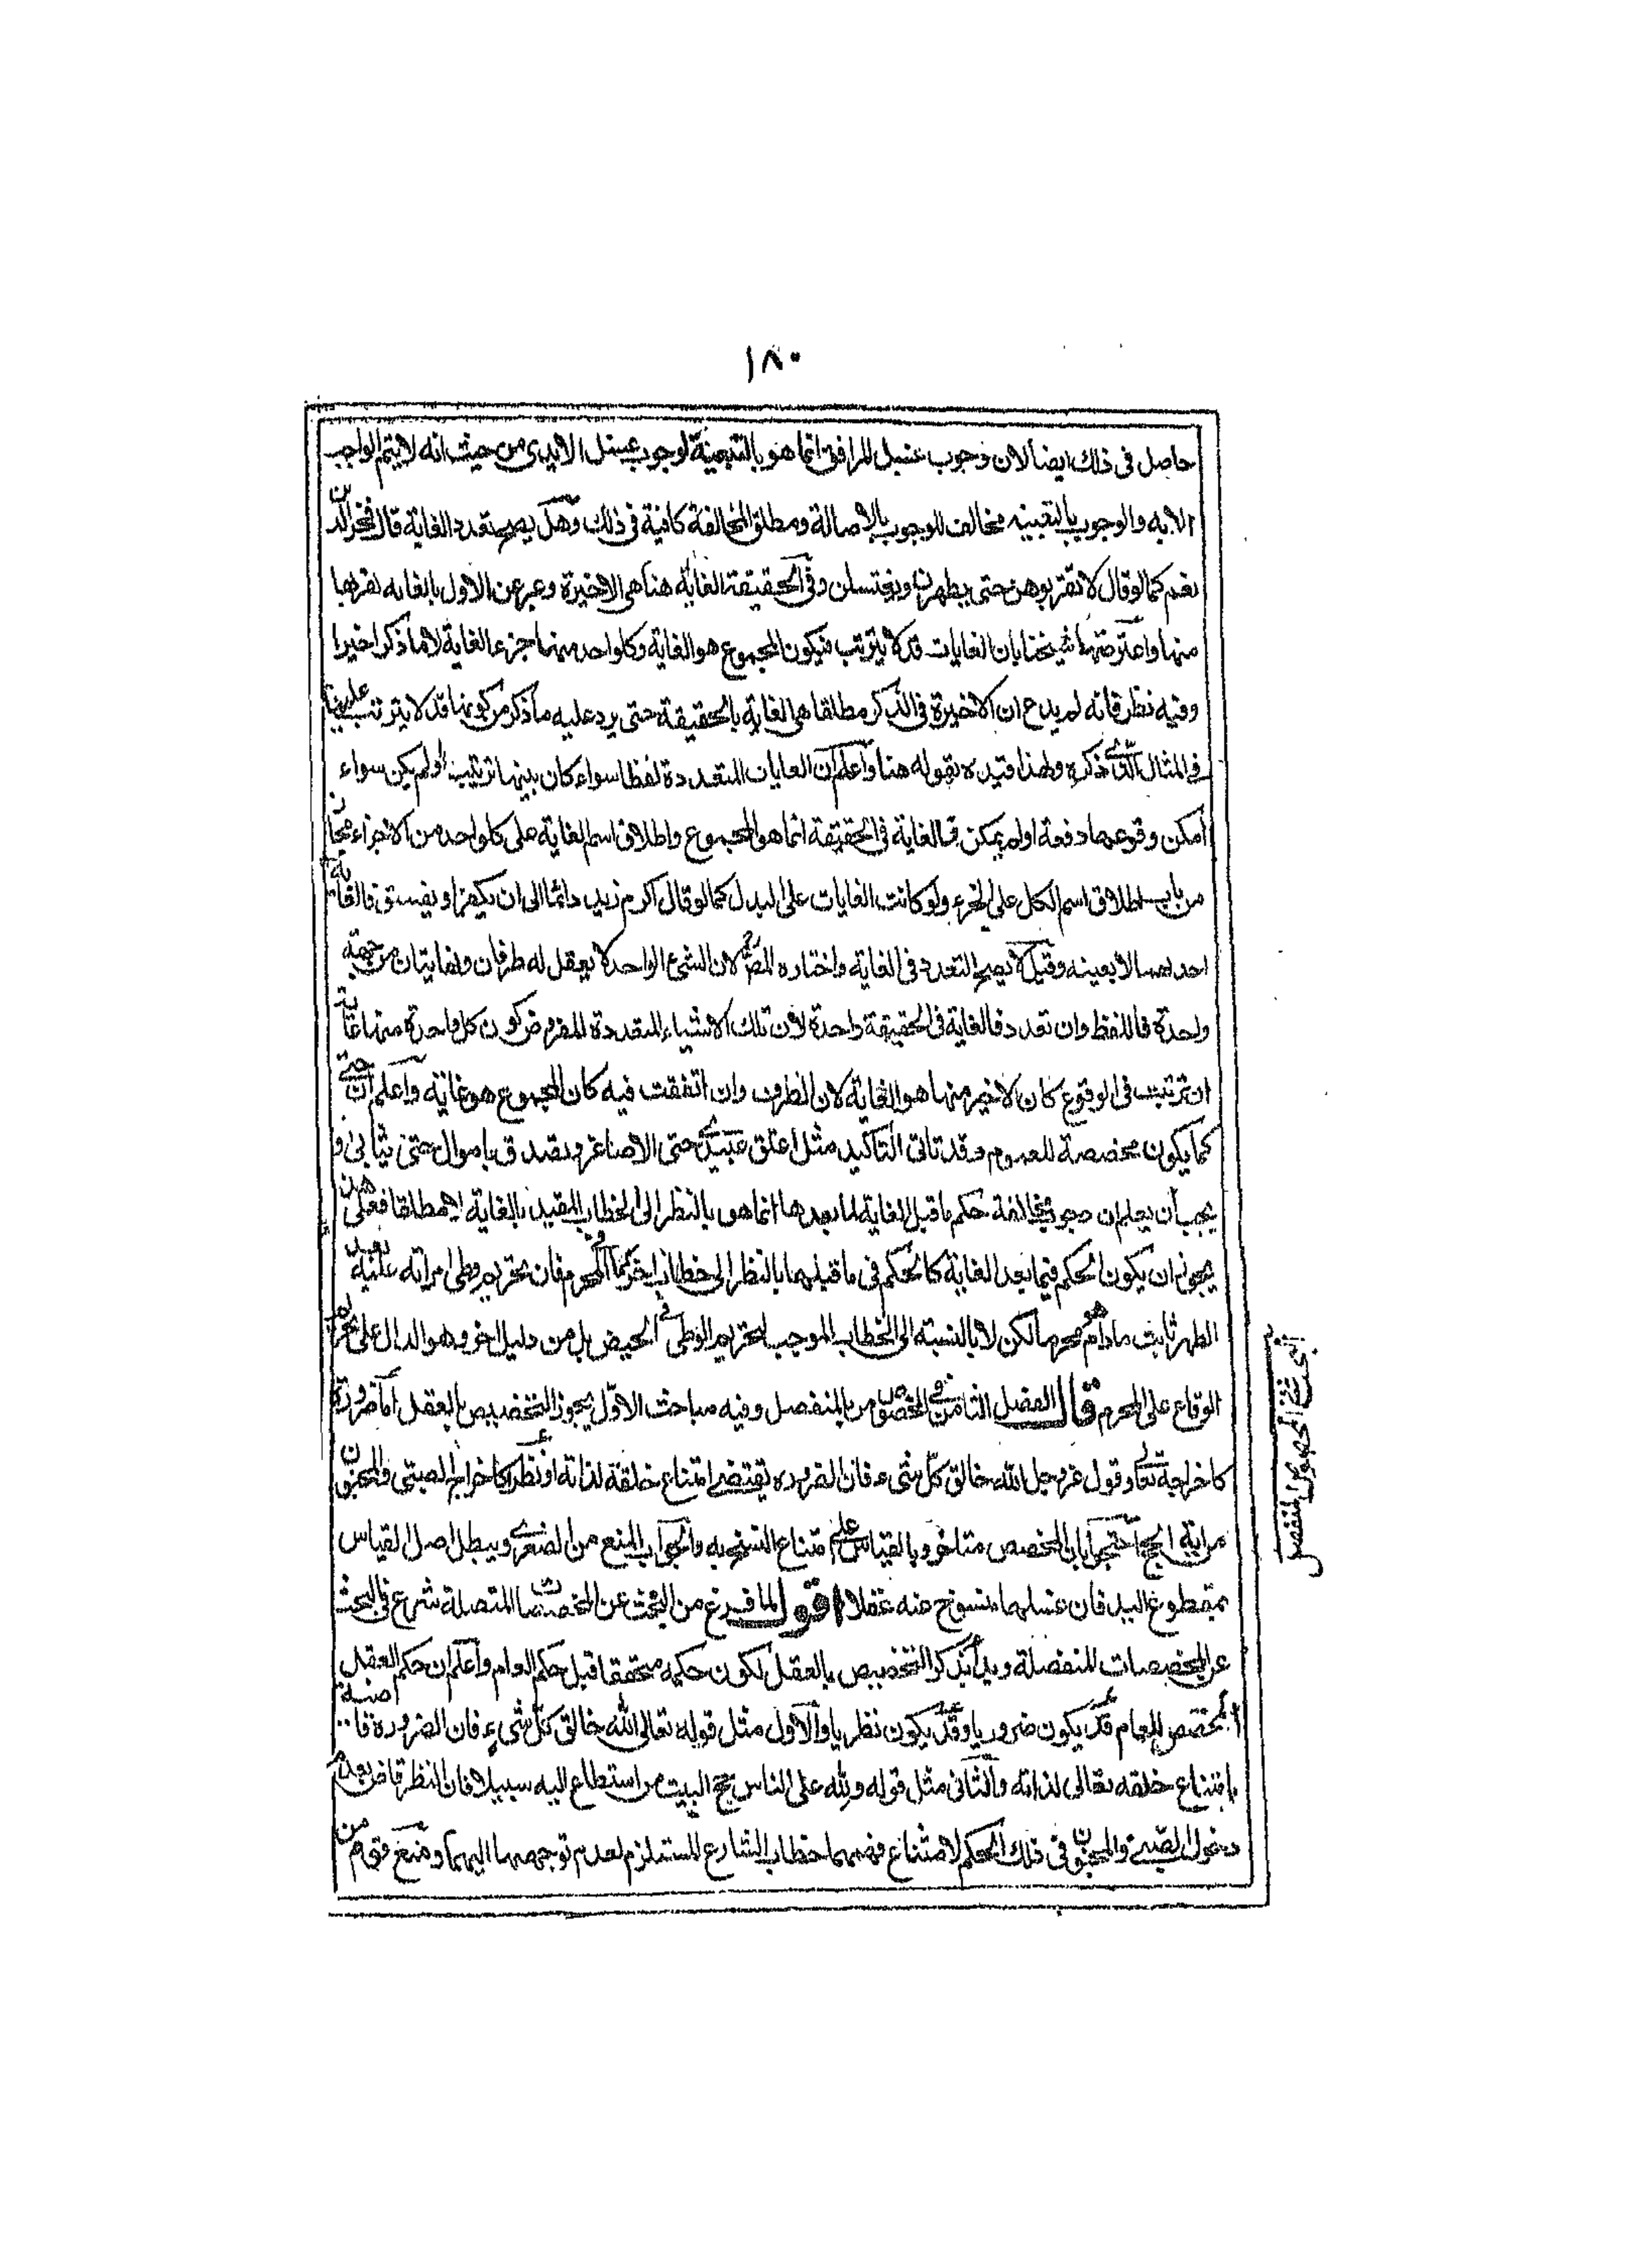 ١٨٠
حاصل فى ذلك ايضا لان وجوب غسل المرافق انما هو بالتبعية لوجوب غسل الايدى من حيث انه لا يتم الواجب
الا به والوجوب بالتبعية مخالف للوجوب بالاصالة ومطلق المخالفة كافية فى ذلك وهل يصح تعدد الغاية قال فخر الدين
نعم كما لو قال لا تقربوهن حتى يطهرن ويغتسلن وفى الحقيقة الغاية هنا هى الاخيرة وعبر عن الاول بالغايه لقربها
منها واعترضه شيخنا بان الغايات قد لا يترتب فيكون المجموع هو الغاية وكل واحد منها جزء الغاية لا ما ذكر اخيرا
وفيه نظر فانه لم يدع ان الاخيرة فى الذكر مطلقا هى الغاية بالحقيقة حتى يرد عليه ما ذكر من كونها قد لا يترتب عليها
فى المثال الذى ذكره ولهذا قيده بقوله هنا واعلم ان الغايات المتعددة لفظا سواء كان بينها ترتيب او لم يكن سواء
امكن وقوعها دفعة او لم يمكن فالغاية فى الحقيقة انما هو المجموع واطلاق اسم الغاية على كل واحد من الاجزاء مجاز
من باب اطلاق اسم الكل على الجزء ولو كانت الغايات على البدل كما لو قال اكرم زيد دائما الى ان يكفر او يفسق فالغاية
احدهما لا بعينه وقيل لا يصح التعدد فى الغاية واختاره المص لان الشىء الواحد لا يعقل له طرفان ونهايتان من جهة
واحدة فاللفظ وان تعدد فالغاية فى الحقيقة واحدة لان تلك الاشياء المتعددة المفروض كون كل واحدة منها غاية
ان ترتبت فى الوقوع كان الاخير منها هو الغاية لان الطرف وان اتفقت فيه كان المجموع هو غايته واعلم ان حتى
كما يكون مخصصة للعموم فقد تاتى التاكيد مثل اعتق عبيدى حتى الاصاغر وتصدق باموالى حتى ثيابى و
يجب ان يعلم ان وجوب مخالفة حكم ما قبل الغاية لما بعدها انما هو بالنظر الى الخطاب المقيد بالغاية لا مطلقا فعلى هذا
يجوز ان يكون الحكم فيما بعد الغاية كالحكم فى ما قبلها بالنظر الى خطاب اخر كما فى المحرم فان تحريم وطى امراته عليه بعد
الطهر ثابت مادام محرما لكن لا بالنسبة الى الخطاب الموجب لتحريم الوطى فى الحيض بل من دليل اخر وهو الدال على تحريم
الوقاع على المحرم قال الفصل الثامن فى المخصوص بالمنفصل وفيه مباحث الاول يجوز التخصيص بالعقل اما ضرورة
كاخراجه تعالى وقول عز وجل الله خالق كل شىء فان الضروره تقتضى امتناع خلقه لذاته او نظرا كاخراج الصبى والمجنون
من اية الحج احتجوا بان المخصص متاخر وبالقياس على امتناع النسخ به والجواب المنع من الصغرى ويبطل اصل القياس
بمقطوع اليد فان غسلهما منسوخ عنه عقلا اقول لما فرغ من البحث عن المخصصات المتصلة شرع فى البحث
عن المخصصات المنفصلة وبدأ بذكر التخصيص بالعقل لكون حكمه متحققا قبل حكم العام واعلم ان حكم العقل
المخصص للعام قد يكون ضروريا وقد يكون نظريا والاول مثل قوله تعالى الله خالق كل شىء فان الضرورة قاضية
بامتناع خلقه تعالى لذاته والثانى مثل قوله ولله على الناس حج البيت من استطاع اليه سبيلا فان النظر قاض بعدم
دخول الصبى والمجنون فى ذلك الحكم لامتناع فهمهما خطاب الشارع المستلزم لعدم توجهه اليهما ومنع قوم من
المخصوص المنفصل